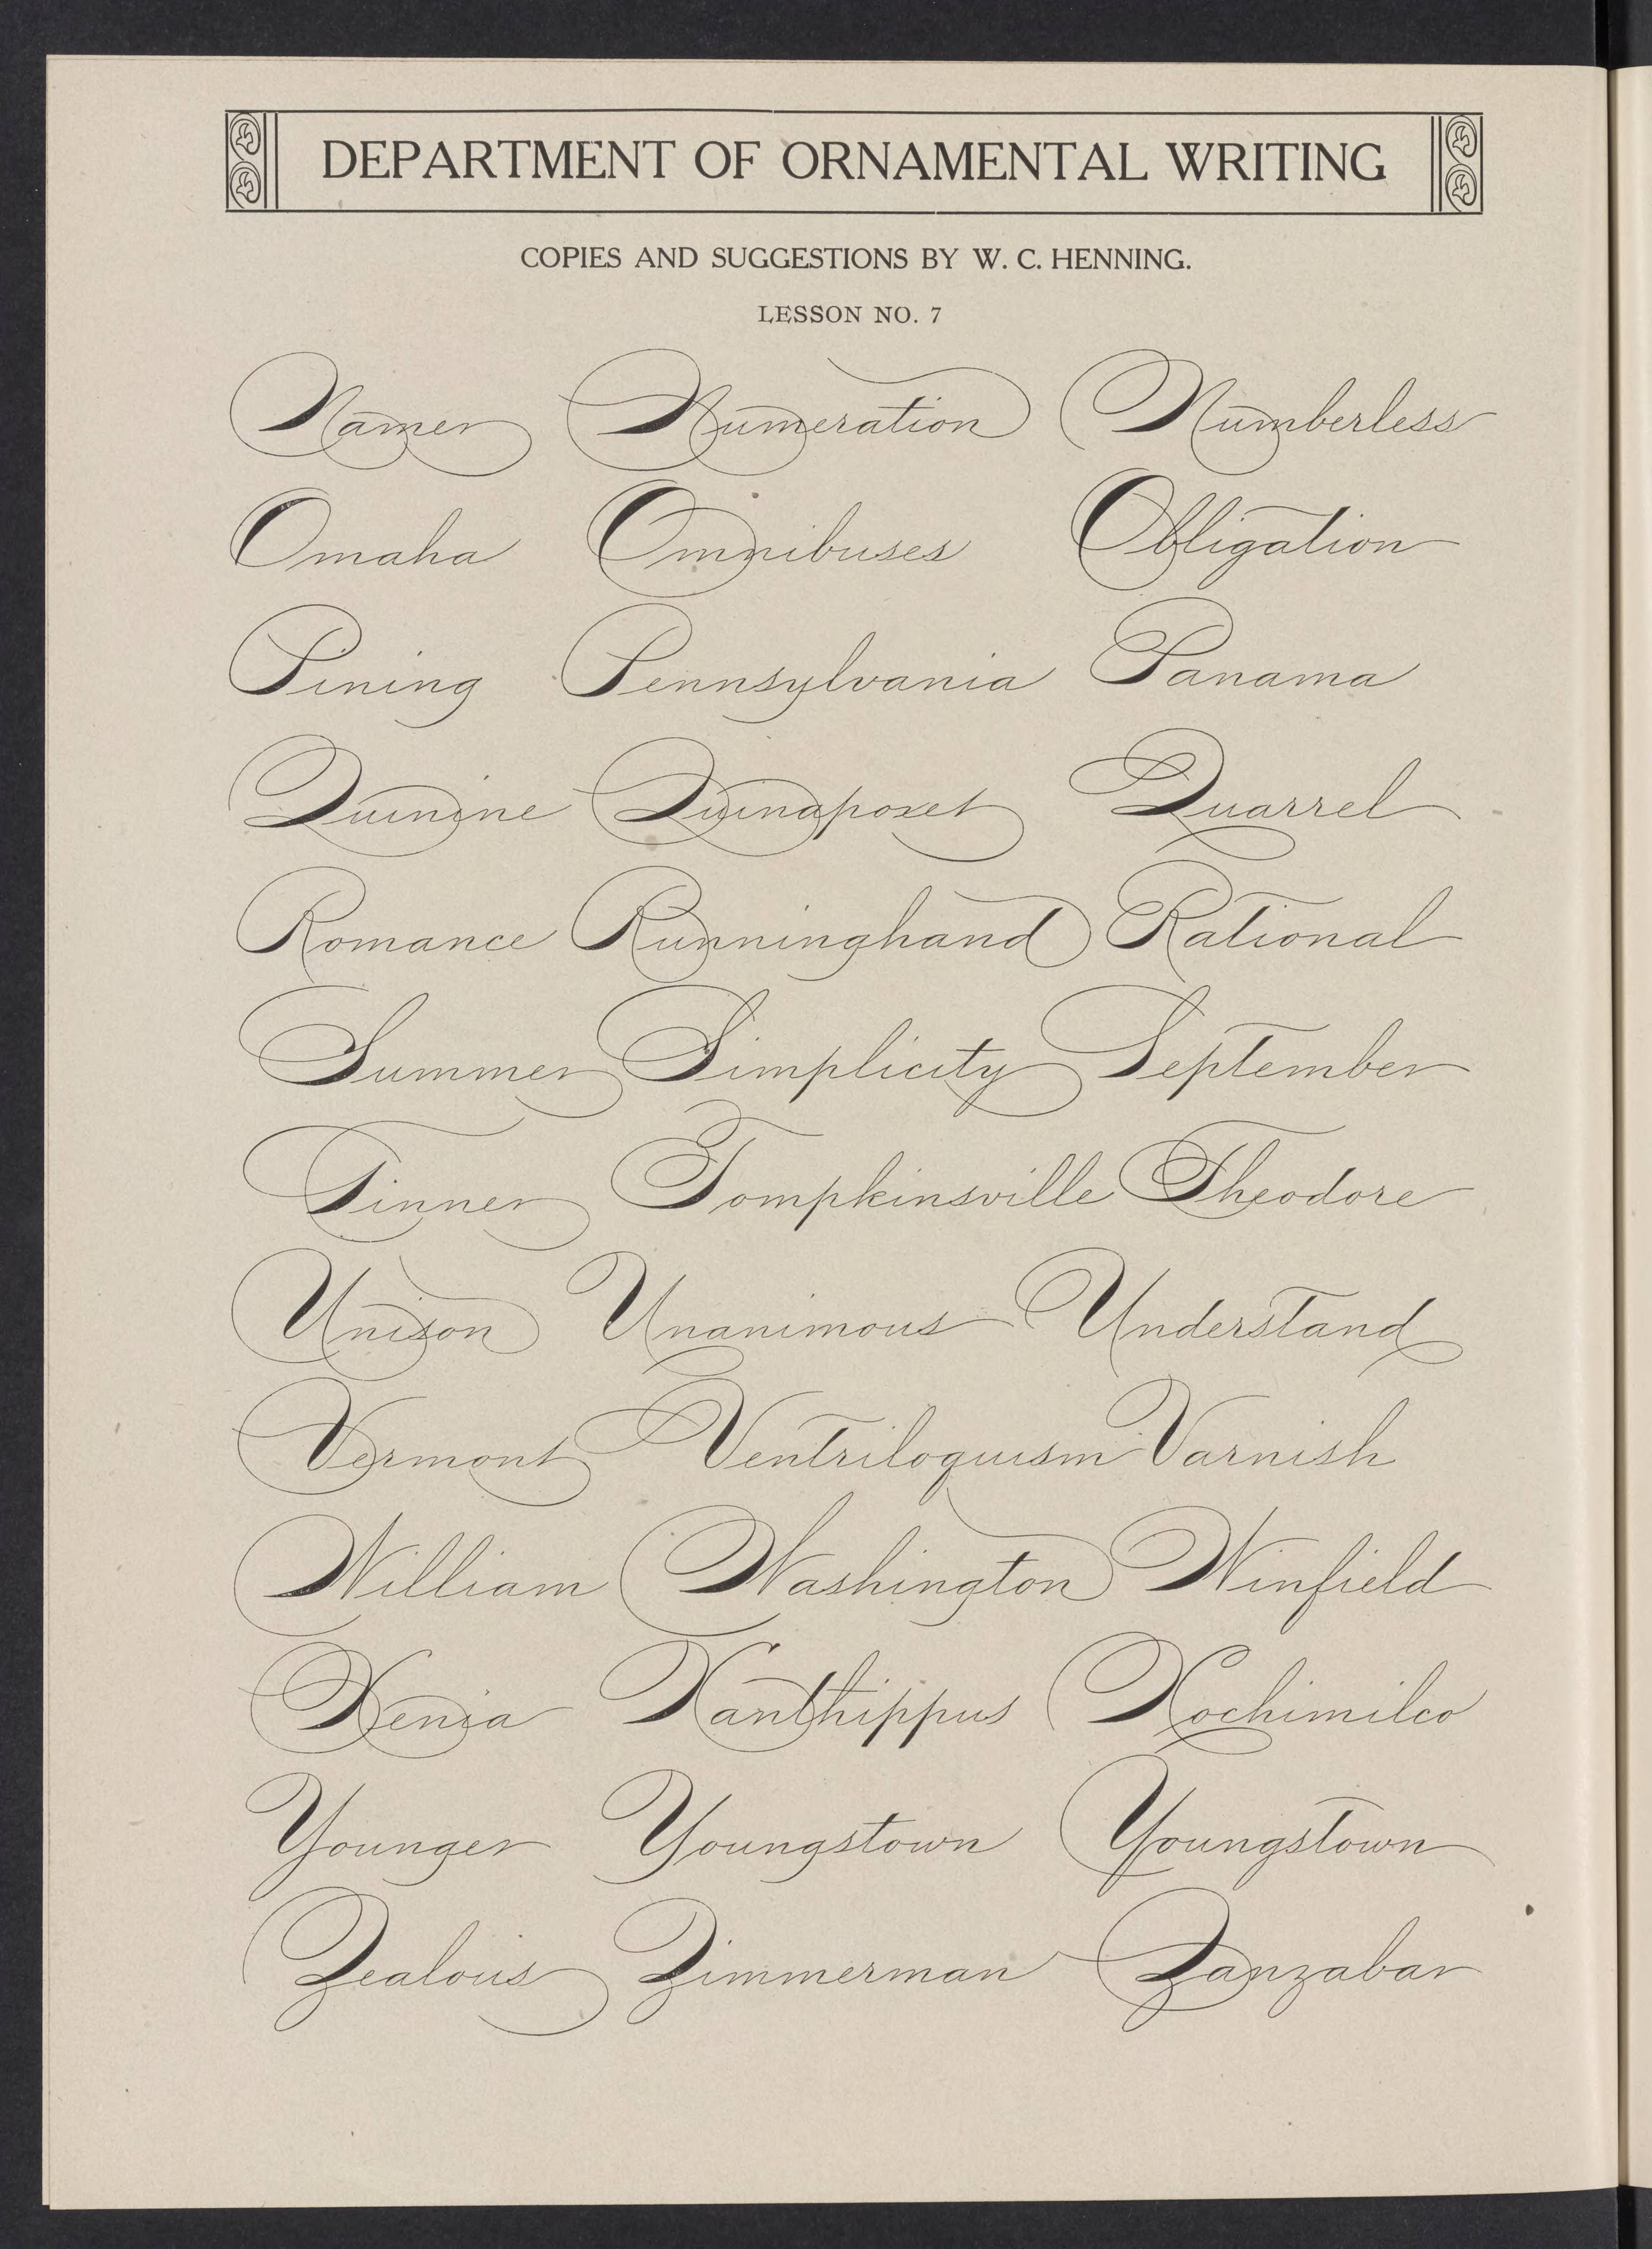 DEPARTMENT OF ORNAMENTAL WRITING
COPIES AND SUGGESTIONS BY W. C. HENNING.
LESSON NO. 7
Namer Numeration Numberless
Omaha Omnibuses Obligation
Pining Pennsylvania Panama
Quinine Quinapoxet Quarrel
Romance Runninghand Rational
Summer Simplicity September
Tinner Tompkinsville Theodore
Unison Unanimous Understand
Vermont Ventriloquism Varnish
William Washington Winfield
Xenia Xanthippus Xochimilco
Younger Youngstown Youngstown
Zealous Zimmerman Zanzabar